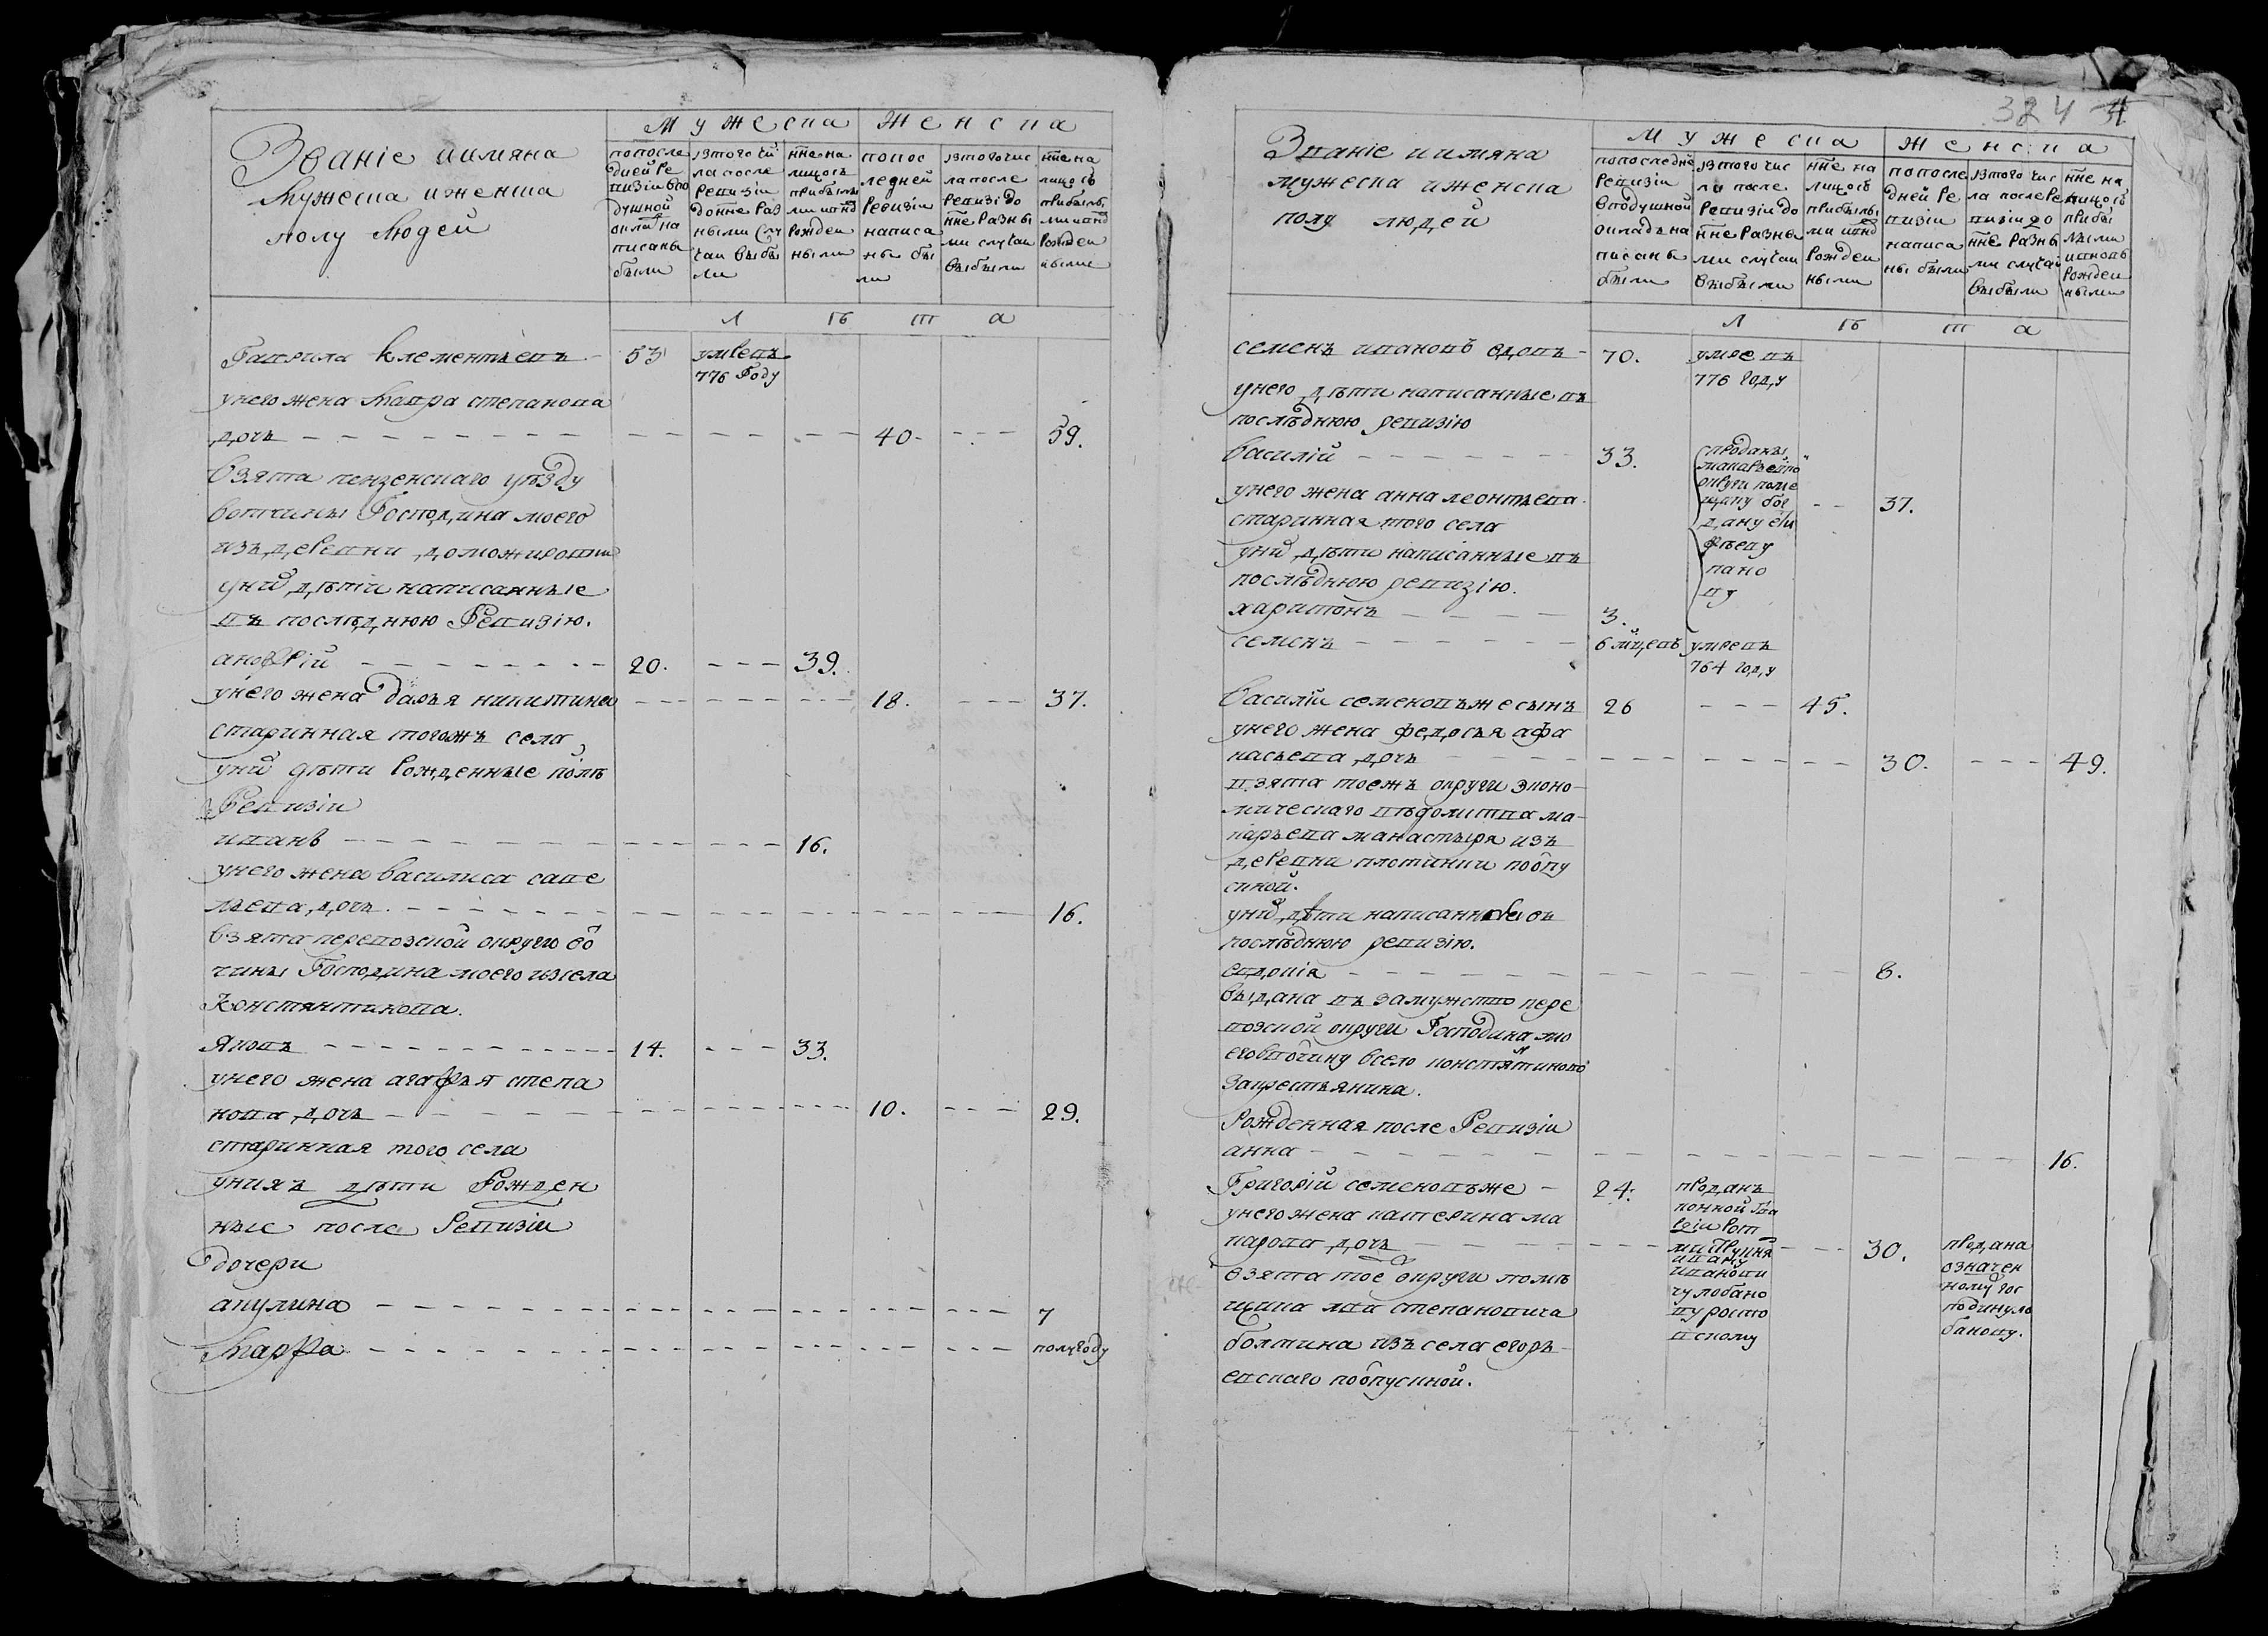 Званіе иимяна
Мужеска иженска
полу людей
Мужеска Женска
попосле
дней Ре
визіи впо
душной
окладъ на
писаны
были
изтого чи
ла после
Ревизіи
донне Раз
ными слу
чаи выбы
ли
нне на
лицосъ
прибылы
ми ивнов
рожден
ными
попос
ледней
Ревизіи
написа
ны бы
ли
изтогочис
ла после
Ревизіи до
нне Разны
ми случаи
выбыли
нне на
лицосъ
прибылы
ми ивнов
рожден
ными
Лѣта
Гаврила Клементьевъ - 53 умревъ
776 Году
унего жена Мавра степанова
дочь 40 59.
Взята пензенскаго уѣзду
вотчины Господина моего
изъ деревни доможировки
уних дѣти написанные
въ последнюю Ревизію.
анофрій 20. 39.
унего жена Дарья никитина 18. 37.
старинная тогожъ села
уних дѣти Рожденные послѣ
Ревизіи
иванъ 16.
унего жена василиса саве
льева дочь 16.
взята перевозской округи во
чины Господина моего изсела
Константинова.
Яковъ 14. 33.
унего жена агафья степа
нова дочь 10. 29.
старинная того села
унихъ дѣти Рожден
ные после Ревизіи
дочери
акулина 7
Марфа полугоду
324
Званіе иимяна
мужеска иженска
полу людей
Мужеска Женска
попоследне
Ревизіи
вподушной
окладъ на
писаны
были
изтого чис
ла после
Ревизіи до
нне Разны
ми случаи
выбыли
нне на
лицосъ
прибылы
ми ивнов
Рожден
ными
попосле
дней Ре
визіи
написа
ны были
изтого чис
ла после Ре
визіи до
нне Разны
ми случаи
выбыли
нне на
лицосъ
прибы
лыми
ивновъ
Рожден
ными
Лѣта
семенъ ивановъ вдовъ - 70. умре въ
776 году
унего дѣти написанные въ
послѣднюю ревизію
василій 33. проданы
макарьевско
округи поме
щику бог
дану
пано
ву
унего жена анна леонтьева 37.
старинная того села
уних дѣти написанные въ
послѣднюю ревизію.
харитонъ 3.
семенъ 6 мцевъ умревъ
764 году
Василій семеновъжесынъ 26 45.
унего жена федосья афа
насьева дочь 30. 49.
взята тоежъ округи эконо
мическаго вѣдомства ма
карьева манастыря изъ
деревни плотинки поотпу
скной.
уних дѣти написанные въ
послѣднюю ревизію.
евдокія 8.
выдана въ замужство пере
возской округи Господина мо
еговвотчину всело константиново
закрестьянина.
Рожденная после Ревизіи
анна 16.
Григорій семеновъже - 24. проданъ
конной гва
рдіи рот
мистру кня
ивану
иванови
чу лобано
ву росто
вскому
унего жена катерина ма
карова дочь 30. продана
означен
ному гос
подинуло
банову.
взята тое округи помѣ
щика льва степановича
болтина изъ села егорь
евскаго поотпускной.